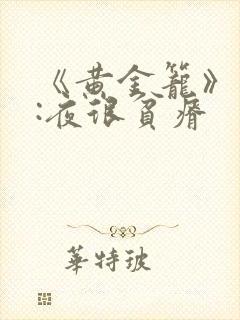 《黄金籠》
:夜很貧瘠
華特玻